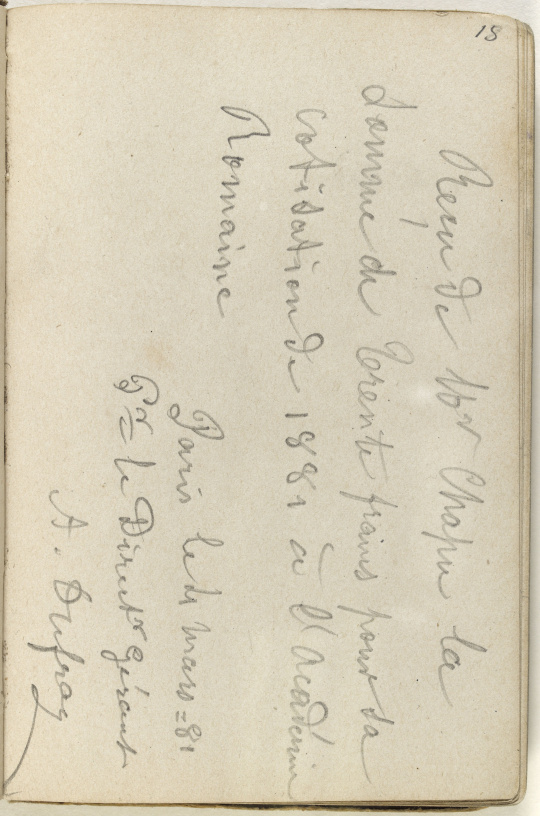 18
Reçu de Mr Chapu la
somme de trente francs pour sa
cotisation de 1881 à l'Académie
Romaine
Paris le 21 mars = 81
Pr le Directr gérant
A. Dufray